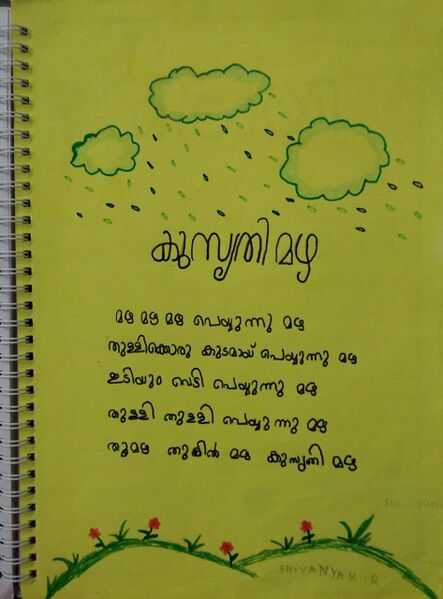 കുസൃതി മഴ
മഴ മഴ മഴ പെയ്യുന്നു മഴ
തുള്ളിക്കൊരു കുടമായ് പെയ്യുന്നു മഴ
ഇടിയും വെടി പെയ്യുന്നു മഴ
തുള്ളി തുള്ളി പെയ്യുന്നു മഴ
തൂമഴ മഴ കുസൃതി മഴ
SHIVANYA K.R